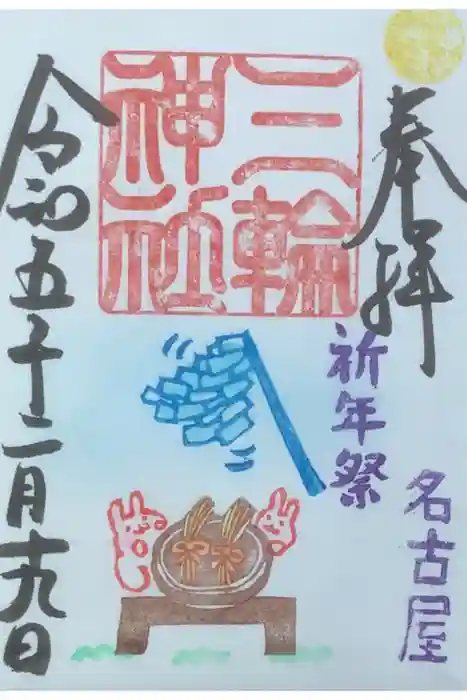 奉拝
三輪
神社
祈年祭
名古屋
令和五年二月十九日